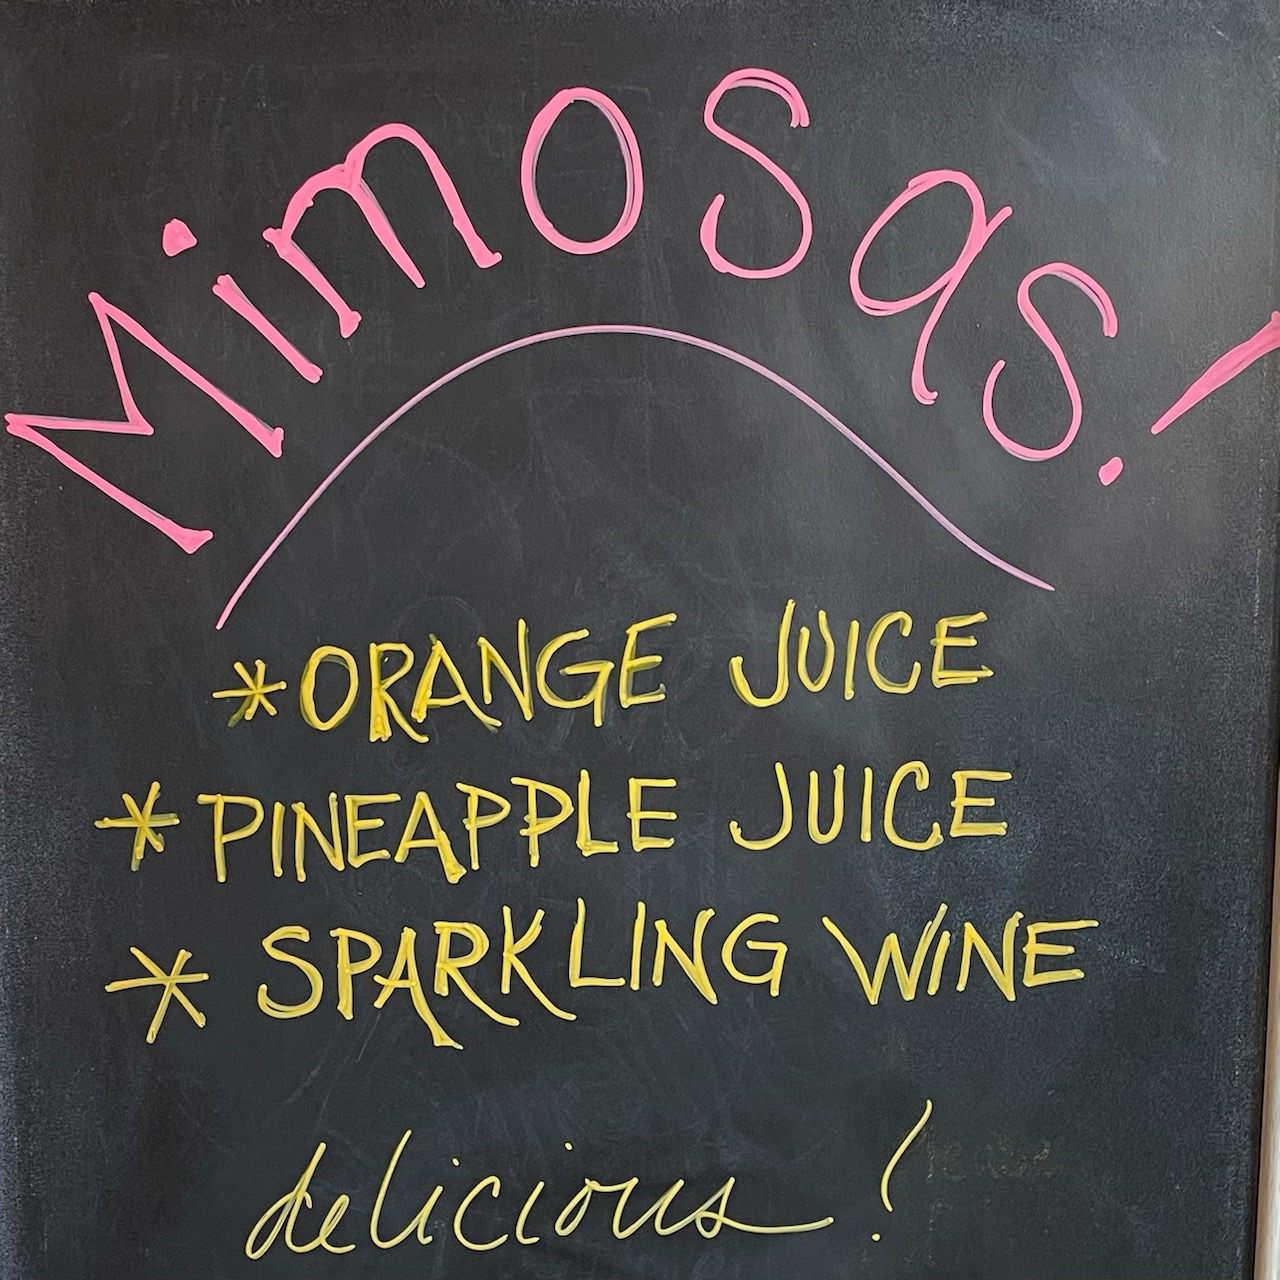 Mimosas!
*ORANGE JUICE
*PINEAPPLE JUICE
* SPARKLING WINE
delicious!